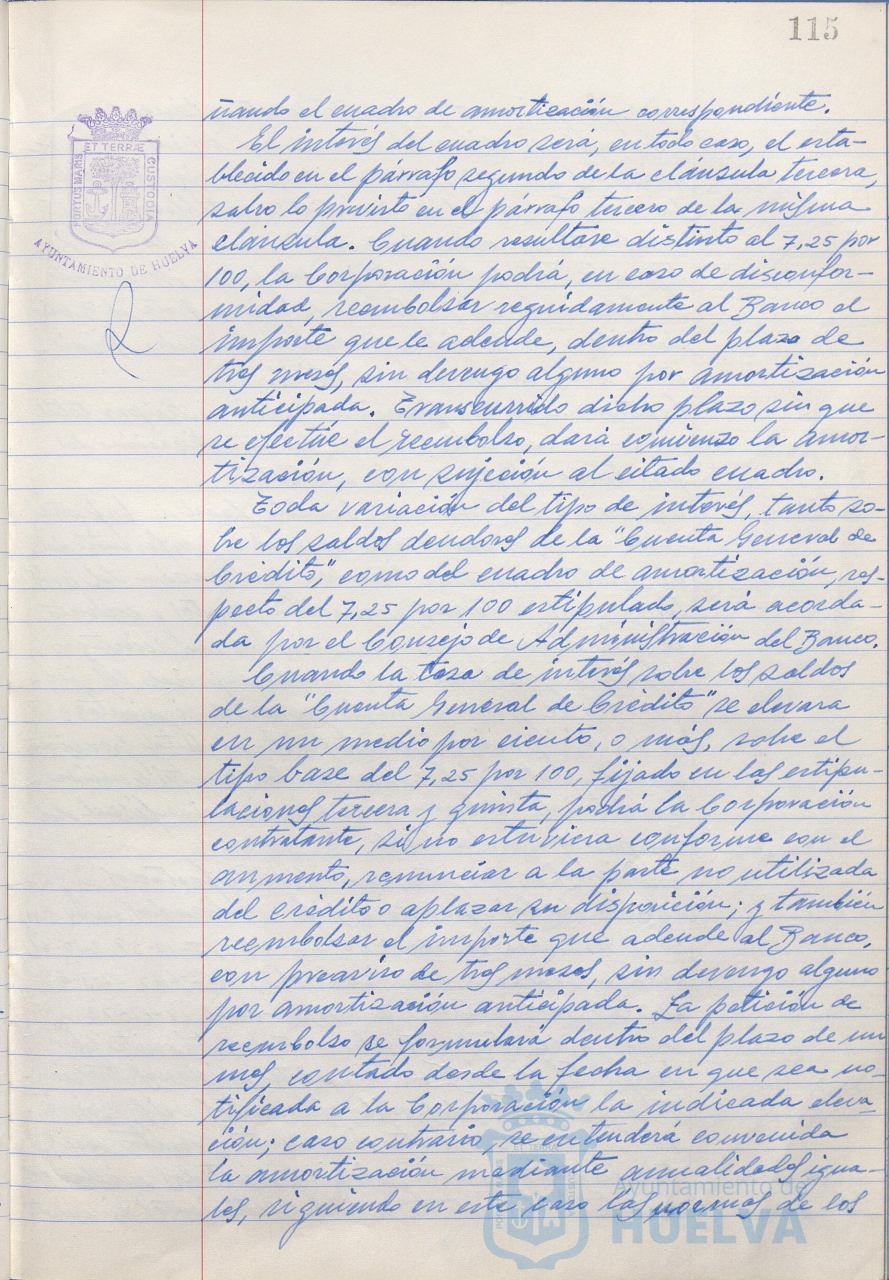 115
PORTUS MARIS
ET TERRÆ
CUSTODIA
AYUNTAMIENTO DE HUELVA
ñando el cuadro de amortización correspondiente.
El interés del cuadro será, en todo caso, el esta-
blecido en el párrafo segundo de la cláusula tercera,
salvo lo previsto en el párrafo tercero de la misma
cláusula. Cuando resultare distinto al 7,25 por
100, la Corporación podrá, en caso de disconfor-
midad, reembolsar seguidamente al Banco el
importe que le adeude, dentro del plazo de
tres meses, sin devengo alguno por amortización
anticipada. Transcurrido dicho plazo sin que
se efectúe el reembolso, dará comienzo la amor-
tización, con sujeción al citado cuadro.
Toda variación del tipo de interés, tanto so-
bre los saldos deudores de la "Cuenta General de
Crédito", como del cuadro de amortización, res-
pecto del 7,25 por 100 estipulado, será acorda-
da por el Consejo de Administración del Banco.
Cuando la tasa de interés sobre los saldos
de la "Cuenta General de Crédito" se elevara
en un medio por ciento, o más, sobre el
tipo base del 7,25 por 100, fijado en las estipu-
laciones tercera y quinta, podrá la Corporación
contratante, si no estuviera conforme con el
aumento, renunciar a la parte no utilizada
del crédito o aplazar su disposición; y también
reembolsar el importe que adeude al Banco,
con preaviso de tres meses, sin devengo alguno
por amortización anticipada. La petición de
reembolso se formulará dentro del plazo de un
mes, contado desde la fecha en que sea no-
tificada a la Corporación la indicada eleva-
ción; caso contrario, se entenderá convenida
la amortización mediante anualidades igua-
les, siguiendo en este caso las normas de los
Ayuntamiento de
HUELVA